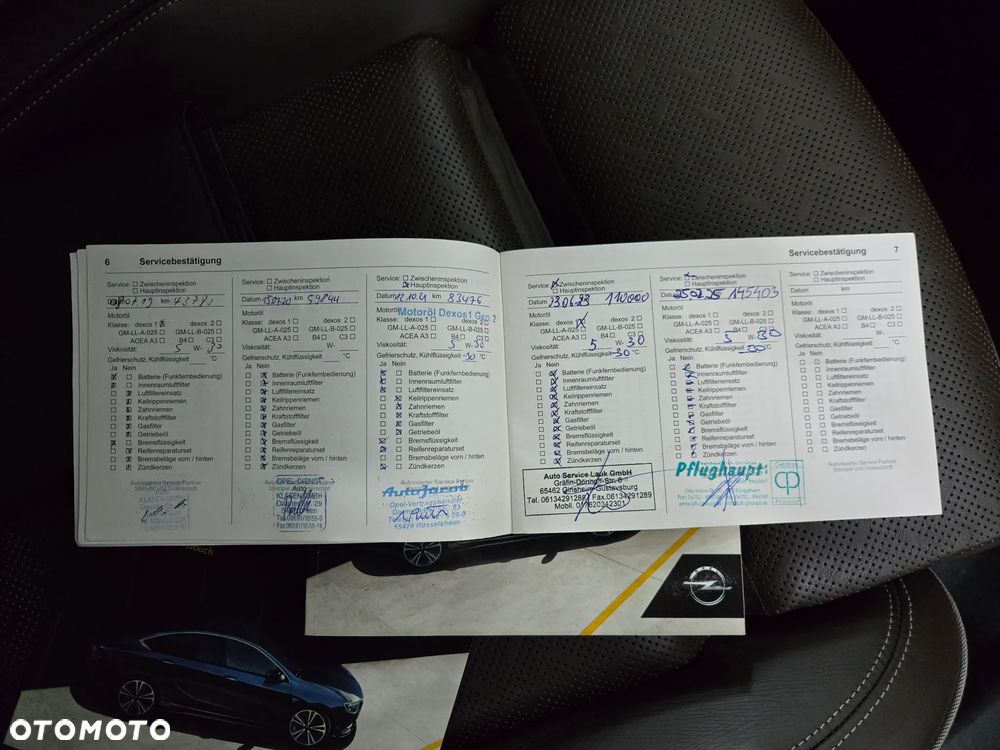 6 Servicebestätigung
Service: ☐ Zwischeninspektion
☐ Hauptinspektion
07.19 km
Motoröl
Klasse: dexos 1 ☒ dexos 2 ☐
GM-LL-A-025 ☐ GM-LL-B-025 ☐
ACEA A3 ☐ B4 ☐ C3 ☐
Viskosität: 5 W- 30
Gefrierschutz, Kühlflüssigkeit °C
Ja Nein
Batterie (Funkfernbedienung)
Innenraumluftfilter
Luftfiltereinsatz
Keilrippenriemen
Zahnriemen
Kraftstofffilter
Gasfilter
Getriebeöl
Bremsflüssigkeit
Reifenreparaturset
Bremsbeläge vorn / hinten
Zündkerzen
Service: ☐ Zwischeninspektion
☐ Hauptinspektion
Datum km
Motoröl
Klasse: dexos 1 ☐ dexos 2 ☐
GM-LL-A-025 ☐ GM-LL-B-025 ☐
ACEA A3 ☐ B4 ☐ C3 ☐
Viskosität: W-
Gefrierschutz, Kühlflüssigkeit °C
Ja Nein
Batterie (Funkfernbedienung)
Innenraumluftfilter
Luftfiltereinsatz
Keilrippenriemen
Zahnriemen
Kraftstofffilter
Gasfilter
Getriebeöl
Bremsflüssigkeit
Reifenreparaturset
Bremsbeläge vorn / hinten
Zündkerzen
OPEL-DIENST
Service: ☐ Zwischeninspektion
☒ Hauptinspektion
Datum 12.10.21 km 83476
Motoröl Dexos1 Gen 2
Klasse: dexos 1 ☐ dexos 2 ☐
GM-LL-A-025 ☐ GM-LL-B-025 ☐
ACEA A3 ☐ B4 ☐ C3 ☐
Viskosität: 5 W- 30
Gefrierschutz, Kühlflüssigkeit -30 °C
Ja Nein
Batterie (Funkfernbedienung)
Innenraumluftfilter
Luftfiltereinsatz
Keilrippenriemen
Zahnriemen
Kraftstofffilter
Gasfilter
Getriebeöl
Bremsflüssigkeit
Reifenreparaturset
Bremsbeläge vorn / hinten
Zündkerzen
AutoJacob
Opel-Vertragshändler
65428 Rüsselsheim
Servicebestätigung 7
Service: ☒ Zwischeninspektion
☐ Hauptinspektion
Datum 23.06.23 110000
Motoröl
Klasse: dexos 1 ☒ dexos 2 ☐
GM-LL-A-025 ☐ GM-LL-B-025 ☐
ACEA A3 ☐ B4 ☐ C3 ☐
Viskosität: 5 W- 30
Gefrierschutz, Kühlflüssigkeit -30 °C
Ja Nein
Batterie (Funkfernbedienung)
Innenraumluftfilter
Luftfiltereinsatz
Keilrippenriemen
Zahnriemen
Kraftstofffilter
Gasfilter
Getriebeöl
Bremsflüssigkeit
Reifenreparaturset
Bremsbeläge vorn / hinten
Zündkerzen
Auto Service Lauk GmbH
Gräfin-Dönhoff-Str. 8
65462 Ginsheim-Gustavsburg
Tel. 06134291288 Fax.06134291289
Mobil. 017620342301
Service: ☐ Zwischeninspektion
☐ Hauptinspektion
Datum 25.02.25 145403
Motoröl
Klasse: dexos 1 ☐ dexos 2 ☐
GM-LL-A-025 ☐ GM-LL-B-025 ☐
ACEA A3 ☐ B4 ☐ C3 ☐
Viskosität: 5 W- 30
Gefrierschutz, Kühlflüssigkeit °C
Ja Nein
Batterie (Funkfernbedienung)
Innenraumluftfilter
Luftfiltereinsatz
Keilrippenriemen
Zahnriemen
Kraftstofffilter
Gasfilter
Getriebeöl
Bremsflüssigkeit
Reifenreparaturset
Bremsbeläge vorn / hinten
Zündkerzen
Pflughaupt
cp
Service: ☐ Zwischeninspektion
☐ Hauptinspektion
Datum km
Motoröl
Klasse: dexos 1 ☐ dexos 2 ☐
GM-LL-A-025 ☐ GM-LL-B-025 ☐
ACEA A3 ☐ B4 ☐ C3 ☐
Viskosität: W-
Gefrierschutz, Kühlflüssigkeit °C
Ja Nein
Batterie (Funkfernbedienung)
Innenraumluftfilter
Luftfiltereinsatz
Keilrippenriemen
Zahnriemen
Kraftstofffilter
Gasfilter
Getriebeöl
Bremsflüssigkeit
Reifenreparaturset
Bremsbeläge vorn / hinten
Zündkerzen
Autorisierter Service Partner
Stempel und Unterschrift
OTOMOTO